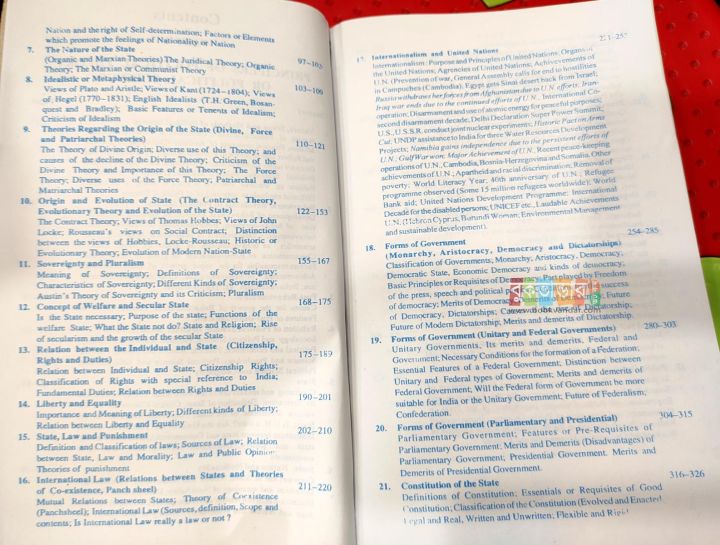 Contents
Nation and the right of Self-determination; Factors or Elements
which promote the feelings of Nationality or Nation
7. The Nature of the State 97–103
(Organic and Marxian Theories) The Juridical Theory; Organic
Theory; The Marxian or Communist Theory
8. Idealistic or Metaphysical Theory 103–106
Views of Plato and Aristle; Views of Kant (1724–1804); Views
of Hegel (1770–1831); English Idealists (T.H. Green, Bosan-
quest and Bradley); Basic Features or Tenents of Idealism;
Criticism of Idealism
9. Theories Regarding the Origin of the State (Divine, Force
and Patriarchal Theories) 110–121
The Theory of Divine Origin; Diverse use of this Theory; and
causes of the decline of the Divine Theory; Criticism of the
Divine Theory and Importance of this Theory; The Force
Theory; Diverse uses of the Force Theory; Patriarchal and
Matriarchal Theories
10. Origin and Evolution of State (The Contract Theory,
Evolutionary Theory and Evolution of the State) 122–153
The Contract Theory; Views of Thomas Hobbes; Views of John
Locke; Rousseau's views on Social Contract; Distinction
between the views of Hobbies, Locke-Rousseau; Historic or
Evolutionary Theory; Evolution of Modern Nation-State
11. Sovereignty and Pluralism 155–167
Meaning of Sovereignty; Definitions of Sovereignty;
Characteristics of Sovereignty; Different Kinds of Sovereignty;
Austin's Theory of Sovereignty and its Criticism; Pluralism
12. Concept of Welfare and Secular State 168–175
Is the State necessary; Purpose of the state; Functions of the
welfare State; What the State not do? State and Religion; Rise
of secularism and the growth of the secular State
13. Relation between the Individual and State (Citizenship,
Rights and Duties) 175–189
Relation between Individual and State; Citizenship Rights;
Classification of Rights with special reference to India;
Fundamental Duties; Relation between Rights and Duties
14. Liberty and Equality 190–201
Importance and Meaning of Liberty; Different kinds of Liberty;
Relation between Liberty and Equality
15. State, Law and Punishment 202–210
Definition and Classification of laws; Sources of Law; Relation
between State, Law and Morality; Law and Public Opinion
Theories of punishment
16. International Law (Relations between States and Theories
of Co-existence, Panch sheel) 211–220
Mutual Relations between States; Theory of Coexistence
(Panchsheel); International Law (Sources, definition, Scope and
contents; Is International Law really a law or not ?
17. Internationalism and United Nations 221–252
Internationalism: Purpose and Principles of United Nations; Organs of
the United Nations; Agrencies of United Nations; Achievements of
U.N. (Prevention of war, General Assembly calls for end to hostilities
in Campuches (Cambodia), Egypt gets Sinai desert back from Israel,
Russia withdraws her forces from Afghanistan due to U.N. efforts; Iran-
Iraq war ends due to the continued efforts of U.N.; International Co-
operation; Disarmament and use of atomic energy for peaceful purposes;
second disarmament decade; Delhi Declaration Super Power Summit;
U.S., U.S.S.R. conduct joint nuclear experiments; Historic Pact on Arms
Cut; UNDP assistance to India for three Water Resources Development
Projects; Namibia gains independence due to the persistent efforts of
U.N.; Gulf War won; Major Achievement of U.N.; Recent peace-keeping
operations of U.N., Cambodia, Bosnia-Herzegovina and Somalia, Other
achievements of U.N.; Apartheid and racial discrimination; Removal of
poverty; World Literacy Year; 40th anniversary of U.N.; Refugee
Programme observed (Some 15 million refugees worldwide); World
Bank aid; United Nations Development Programme; International
Decade for the disabled persons; UNICEF etc., Laudable Achievements
U.N. Cyprus, Burundi Woman; Environmental Management
and sustainable development).
18. Forms of Government 254–285
(Monarchy, Aristocracy, Democracy and Dictatorships)
Classification of Governments; Monarchy, Aristocracy, Democracy;
Democratic State, Economic Democracy and kinds of democracy;
Basic Principles or Requisites of Democracy, Part played by Freedom
of the press, speech and political success
of democracy; Merits of Democracy
of Democracy, Dictatorships; Future
Future of Modern Dictatorship, Merits and demerits of Dictatorship.
www.boibhandar.com
19. Forms of Government (Unitary and Federal Governments) 280–303
Unitary Governments, Its merits and demerits, Federal and
Government; Necessary Conditions for the formation of a Federation;
Essential Features of a Federal Government; Distinction between
Unitary and Federal types of Government; Merits and demerits of
Federal Government; Will the Federal form of Government be more
suitable for India or the Unitary Government; Future of Federalism;
Confederation.
20. Forms of Government (Parliamentary and Presidential) 304–315
Parliamentary Government; Features or Pre-Requisites of
Parliamentary Government; Merits and Demerits (Disadvantages) of
Parliamentary Government; Presidential Government. Merits and
Demerits of Presidential Government.
21. Constitution of the State 316–326
Definitions of Constitution; Essentials or Requisites of Good
Constitution; Classification of the Constitution (Evolved and Enacted
Legal and Real, Written and Unwritten, Flexible and Rigid